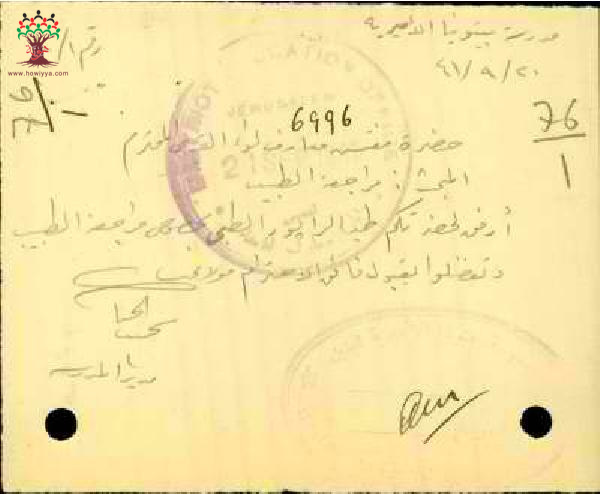 مدرسة بيتونيا الأميرية
رقم /١
٤١/٩/٢٠
www.howiyya.com
EDUCATION OFFICE
JERUSALEM
DISTRICT
21 S
6996
76/1
76/1
حضرة مفتش معارف لواء القدس المحترم
المبحث : مراجعة الطبيب
أرفق لحضرتكم طيه الرابور الطبي بخصوص مراجعة الطبيب
وتفضلوا بقبول فائق الاحترام مولاي
المخلص
مدير المدرسة